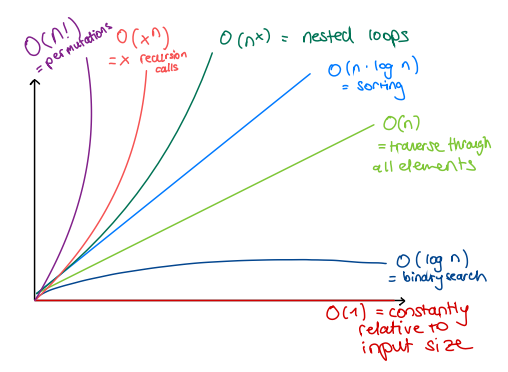 O(n!)
= permutations
O(xⁿ)
= x recursion
calls
O(nˣ) = nested loops
O(n · log n)
= sorting
O(n)
= traverse through
all elements
O(log n)
= binary search
O(1) = constantly
relative to
input size